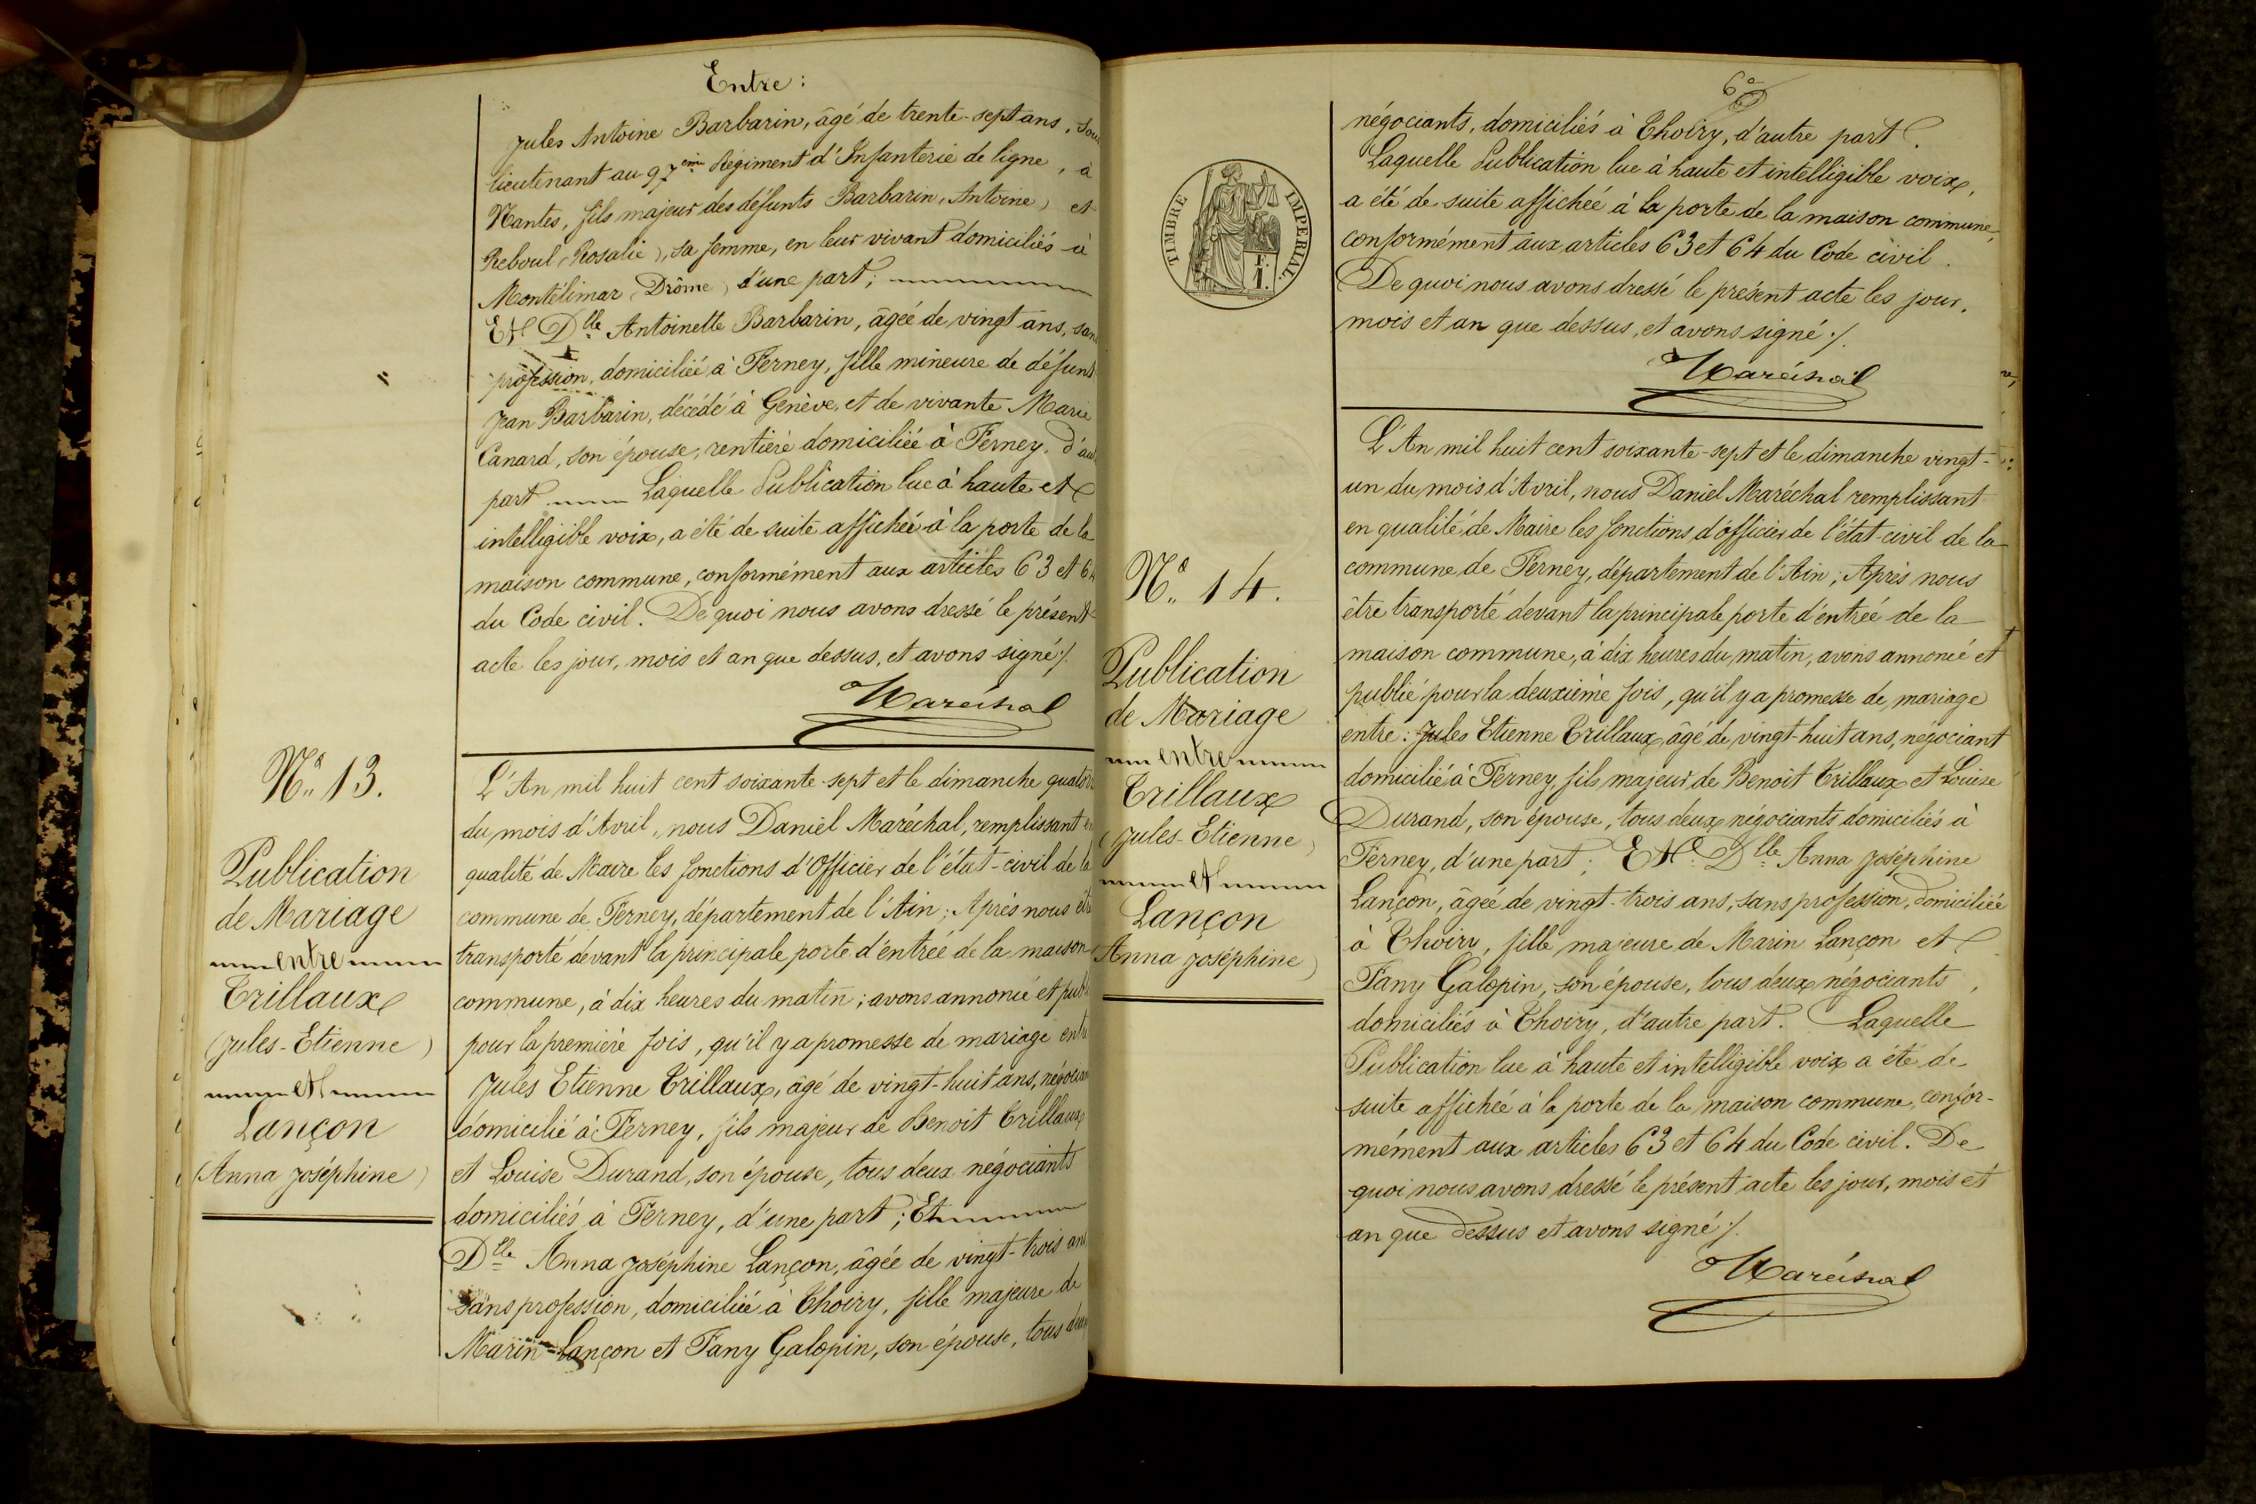 Entre :
Jules Antoine Barbarin, âgé de trente-sept ans, sous
lieutenant au 97eme Régiment d'Infanterie de ligne, à
Nantes, fils majeur des défunts Barbarin, Antoine) et
Reboul (Rosalie), sa femme, en leur vivant domiciliés à
Montélimar (Drôme) d'une part ;
Et Dlle Antoinette Barbarin, âgée de vingt ans, san
profession, domiciliée à Ferney, fille mineure de défunt
Jean Barbarin, décédé à Genève, et de vivante Marie
Canard, son épouse, rentière domiciliée à Ferney, d'au
part Laquelle Publication lue à haute et
intelligible voix, a été de suite affichée à la porte de la
maison commune, conformément aux articles 63 et 64
du Code civil. De quoi nous avons dressé le présent
acte les jour, mois et an que dessus, et avons signé ./.
Maréchal
No 13.
Publication
de Mariage
entre
Trillaux
(Jules-Etienne)
et
Lançon
(Anna Joséphine)
L'An mil huit cent soixante-sept et le dimanche quatorz
du mois d'Avril, nous Daniel Maréchal, remplissant en
qualité de Maire les fonctions d'Officier de l'état-civil de la
commune de Ferney, département de l'Ain ; Après nous être
transporté devant la principale porte d'entrée de la maison
commune, à dix heures du matin ; avons annoncé et publ
pour la première fois, qu'il y a promesse de mariage entr
Jules Etienne Trillaux, âgé de vingt-huit ans, négocian
domicilié à Ferney, fils majeur de Benoit Trillaux
et Louise Durand, son épouse, tous deux négociants
domiciliés à Ferney, d'une part ; Et
Dlle Anna Joséphine Lançon, âgée de vingt-trois ans
sans profession, domiciliée à Thoiry, fille majeure de
Marin Lançon et Fany Galopin, son épouse, tous deux
6e
négociants, domiciliés à Thoiry, d'autre part.
Laquelle Publication lue à haute et intelligible voix,
a été de suite affichée à la porte de la maison commune,
conformément aux articles 63 et 64 du Code civil.
De quoi nous avons dressé le présent acte les jour,
mois et an que dessus, et avons signé ./.
Maréchal
TIMBRE IMPERIAL.
1 F.
No 14.
Publication
de Mariage
entre
Trillaux
(Jules-Etienne)
et
Lançon
Anna Joséphine)
L'An mil huit cent soixante-sept et le dimanche vingt-
un du mois d'Avril, nous Daniel Maréchal remplissant
en qualité de Maire les fonctions d'officier de l'état-civil de la
commune de Ferney, département de l'Ain ; Après nous
être transporté devant la principale porte d'entrée de la
maison commune, à dix heures du matin, avons annoncé et
publié pour la deuxième fois, qu'il y a promesse de mariage
entre : Jules Etienne Trillaux, âgé de vingt-huit ans, négociant
domicilié à Ferney, fils majeur de Benoit Trillaux et Louise
Durand, son épouse, tous deux négociants domiciliés à
Ferney, d'une part ; Et Dlle Anna Joséphine
Lançon, âgée de vingt-trois ans, sans profession, domiciliée
à Thoiry, fille majeure de Marin Lançon et
Fany Galopin, son épouse, tous deux négociants,
domiciliés à Thoiry, d'autre part. Laquelle
Publication lue à haute et intelligible voix a été de
suite affichée à la porte de la maison commune, confor-
mément aux articles 63 et 64 du Code civil. De
quoi nous avons dressé le présent acte les jour, mois et
an que dessus et avons signé ./.
Maréchal